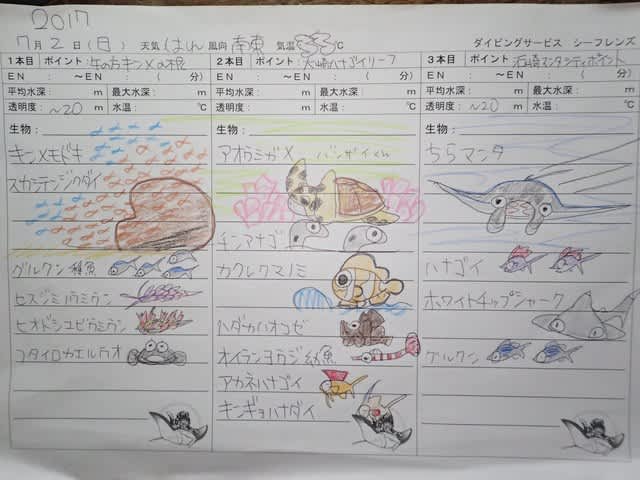 2017
7月2日(日) 天気(はれ) 風向 南東 気温 ℃ ダイビングサービス シーフレンズ
1本目 ポイント:
EN : ～EN : ( 分)
平均水深: m 最大水深: m
透明度: ～20 m 水温: ℃
生物:
キンメモドキ
スカシテンジクダイ
グルクン 稚魚
セスジミノウミウシ
ヒオドシユビウミウシ
コタイロカエルウオ
2本目 ポイント: 大崎ハナゴイリーフ
EN : ～EN : ( 分)
平均水深: m 最大水深: m
透明度: m 水温: ℃
生物:
アオウミガメ バンザイくん
チンアナゴ
カクレクマノミ
ハダカハオコゼ
オイランヨウジ 幼魚
アカネハナゴイ
キンギョハナダイ
3本目 ポイント: 石崎マンタシティポイント
EN : ～EN : ( 分)
平均水深: m 最大水深: m
透明度: ～20 m 水温: ℃
生物:
ちらマンタ
ハナゴイ
ホワイトチップシャーク
グルクン